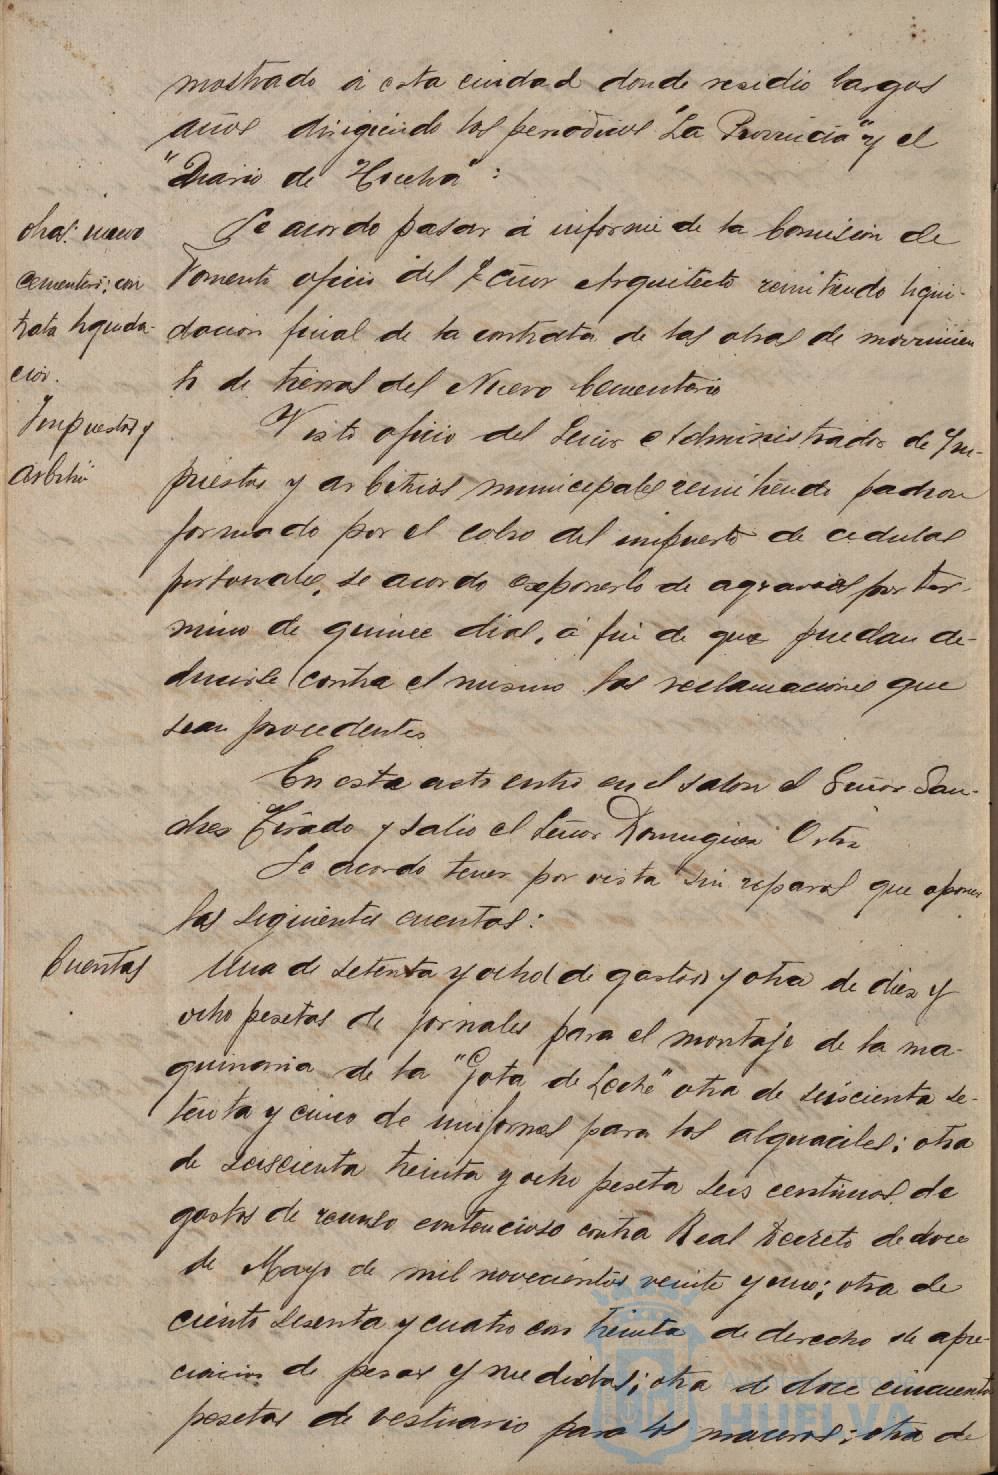 mostrado á esta ciudad donde residio largos
años dirigiendo los periodicos "La Provincia" y el
"Diario de Huelva":
obras nuevo
cementerio; con
trata liquida-
cion.
Se acordo pasar á informe de la Comision de
Fomento oficio del Señor Arquitecto remitiendo liqui-
dacion final de la contrata de las obras de movimien
to de tierras del Nuevo Cementerio
Impuestos y
arbitri
Visto oficio del Señor Administrador de Im-
puestos y arbitrios municipales remitiendo padron
formado por el cobro del impuesto de cedulas
personales, se acordo exponerlo de agravios por ter-
mino de quince dias, á fin de que puedan de-
ducirse contra el mismo las reclamaciones que
sean procedentes
En este acto entro en el salon el Señor San-
ches Tirado y salio el Señor Dominguez Ortiz
Se acordo tener por vista sin reparos que oponer
las siguientes cuentas:
Cuentas
Una de setenta y ocho de gastos y otra de diez y
ocho pesetas de jornales para el montaje de la ma-
quinaria de la "Gota de Leche" otra de seiscienta se-
tenta y cinco de uniformes para los alguaciles; otra
de seiscienta treinta y ocho peseta seis centimos de
gastos de recurso contencioso contra Real Decreto de doce
de Mayo de mil novecientos veinte y uno; otra de
ciento sesenta y cuatro con treinta de derecho de apre-
ciacion de pesas y medidas; otra de doce cincuenta
pesetas de vestuario para los maceros; otra de
Ayuntamiento de
HUELVA